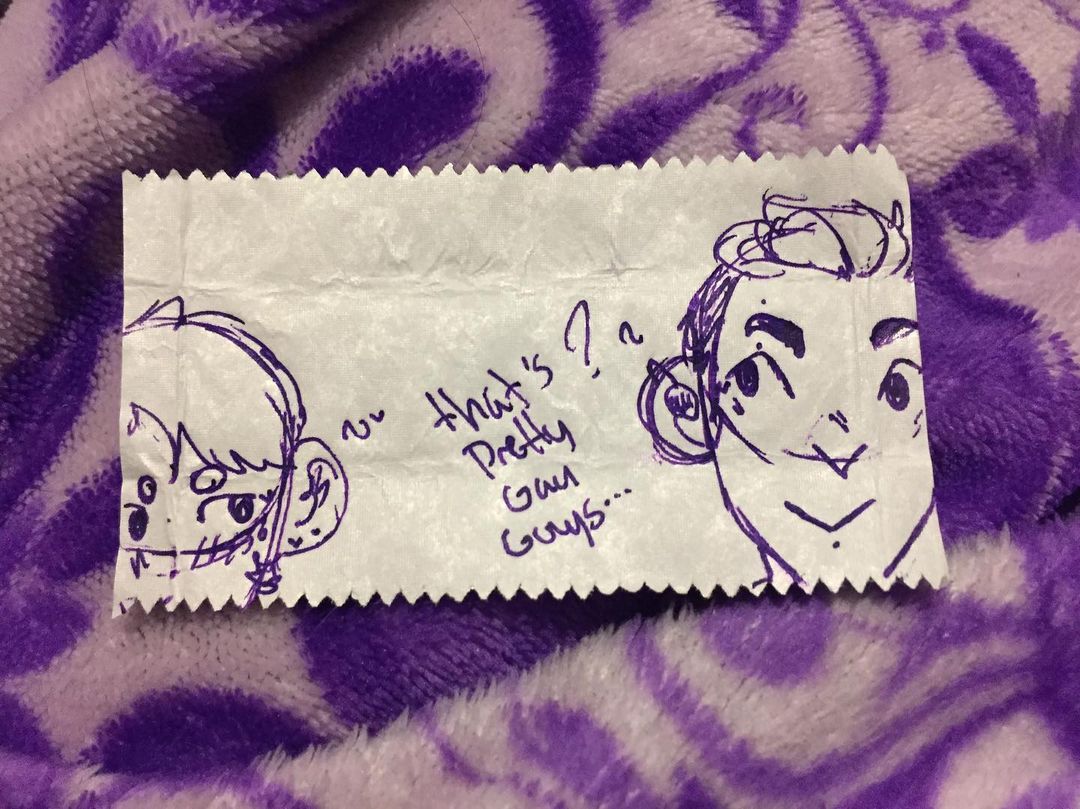 that's ?
pretty
gay
guys...